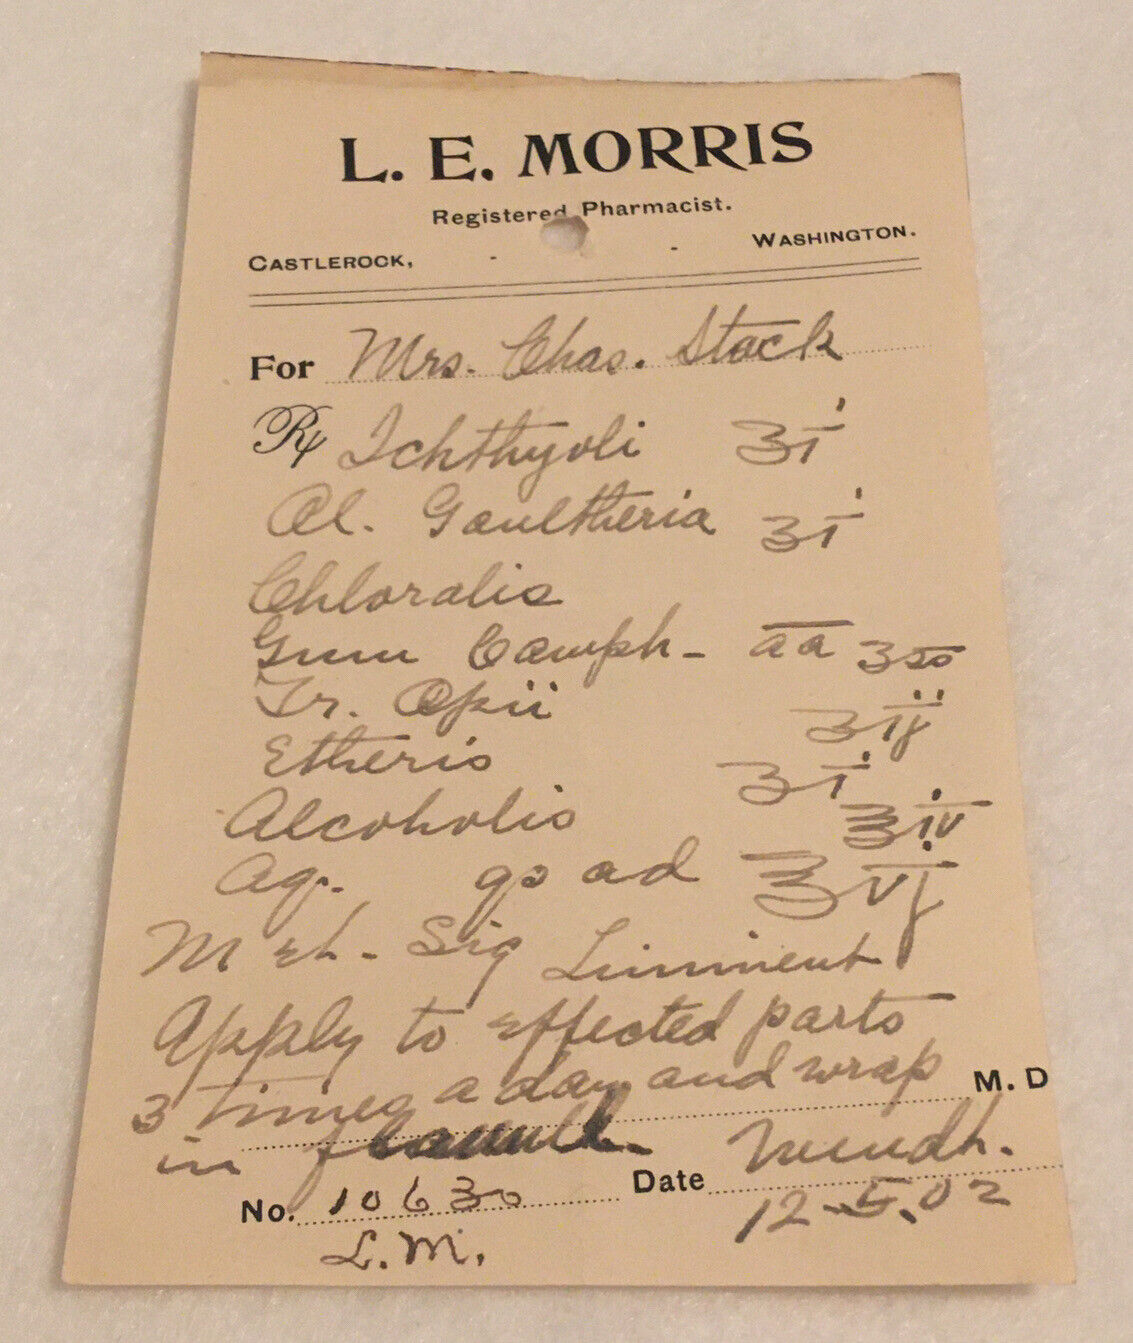 L. E. MORRIS
Registered Pharmacist.
CASTLEROCK, - - WASHINGTON.
For Mrs. Chas. Stack
Rx Ichthyoli ʒi
Ol. Gaultheria ʒi
Chloralis
Gum Camph- aa ʒss
Tr. Opii ʒij
Etheris ʒi
Alcoholis ℥iv
Aq. qs ad ℥vj
M Sig Liniment
Apply to effected parts
3 times a day and wrap
M. D
in flannell.
No. 10630 Date
12-5.02
L.M.